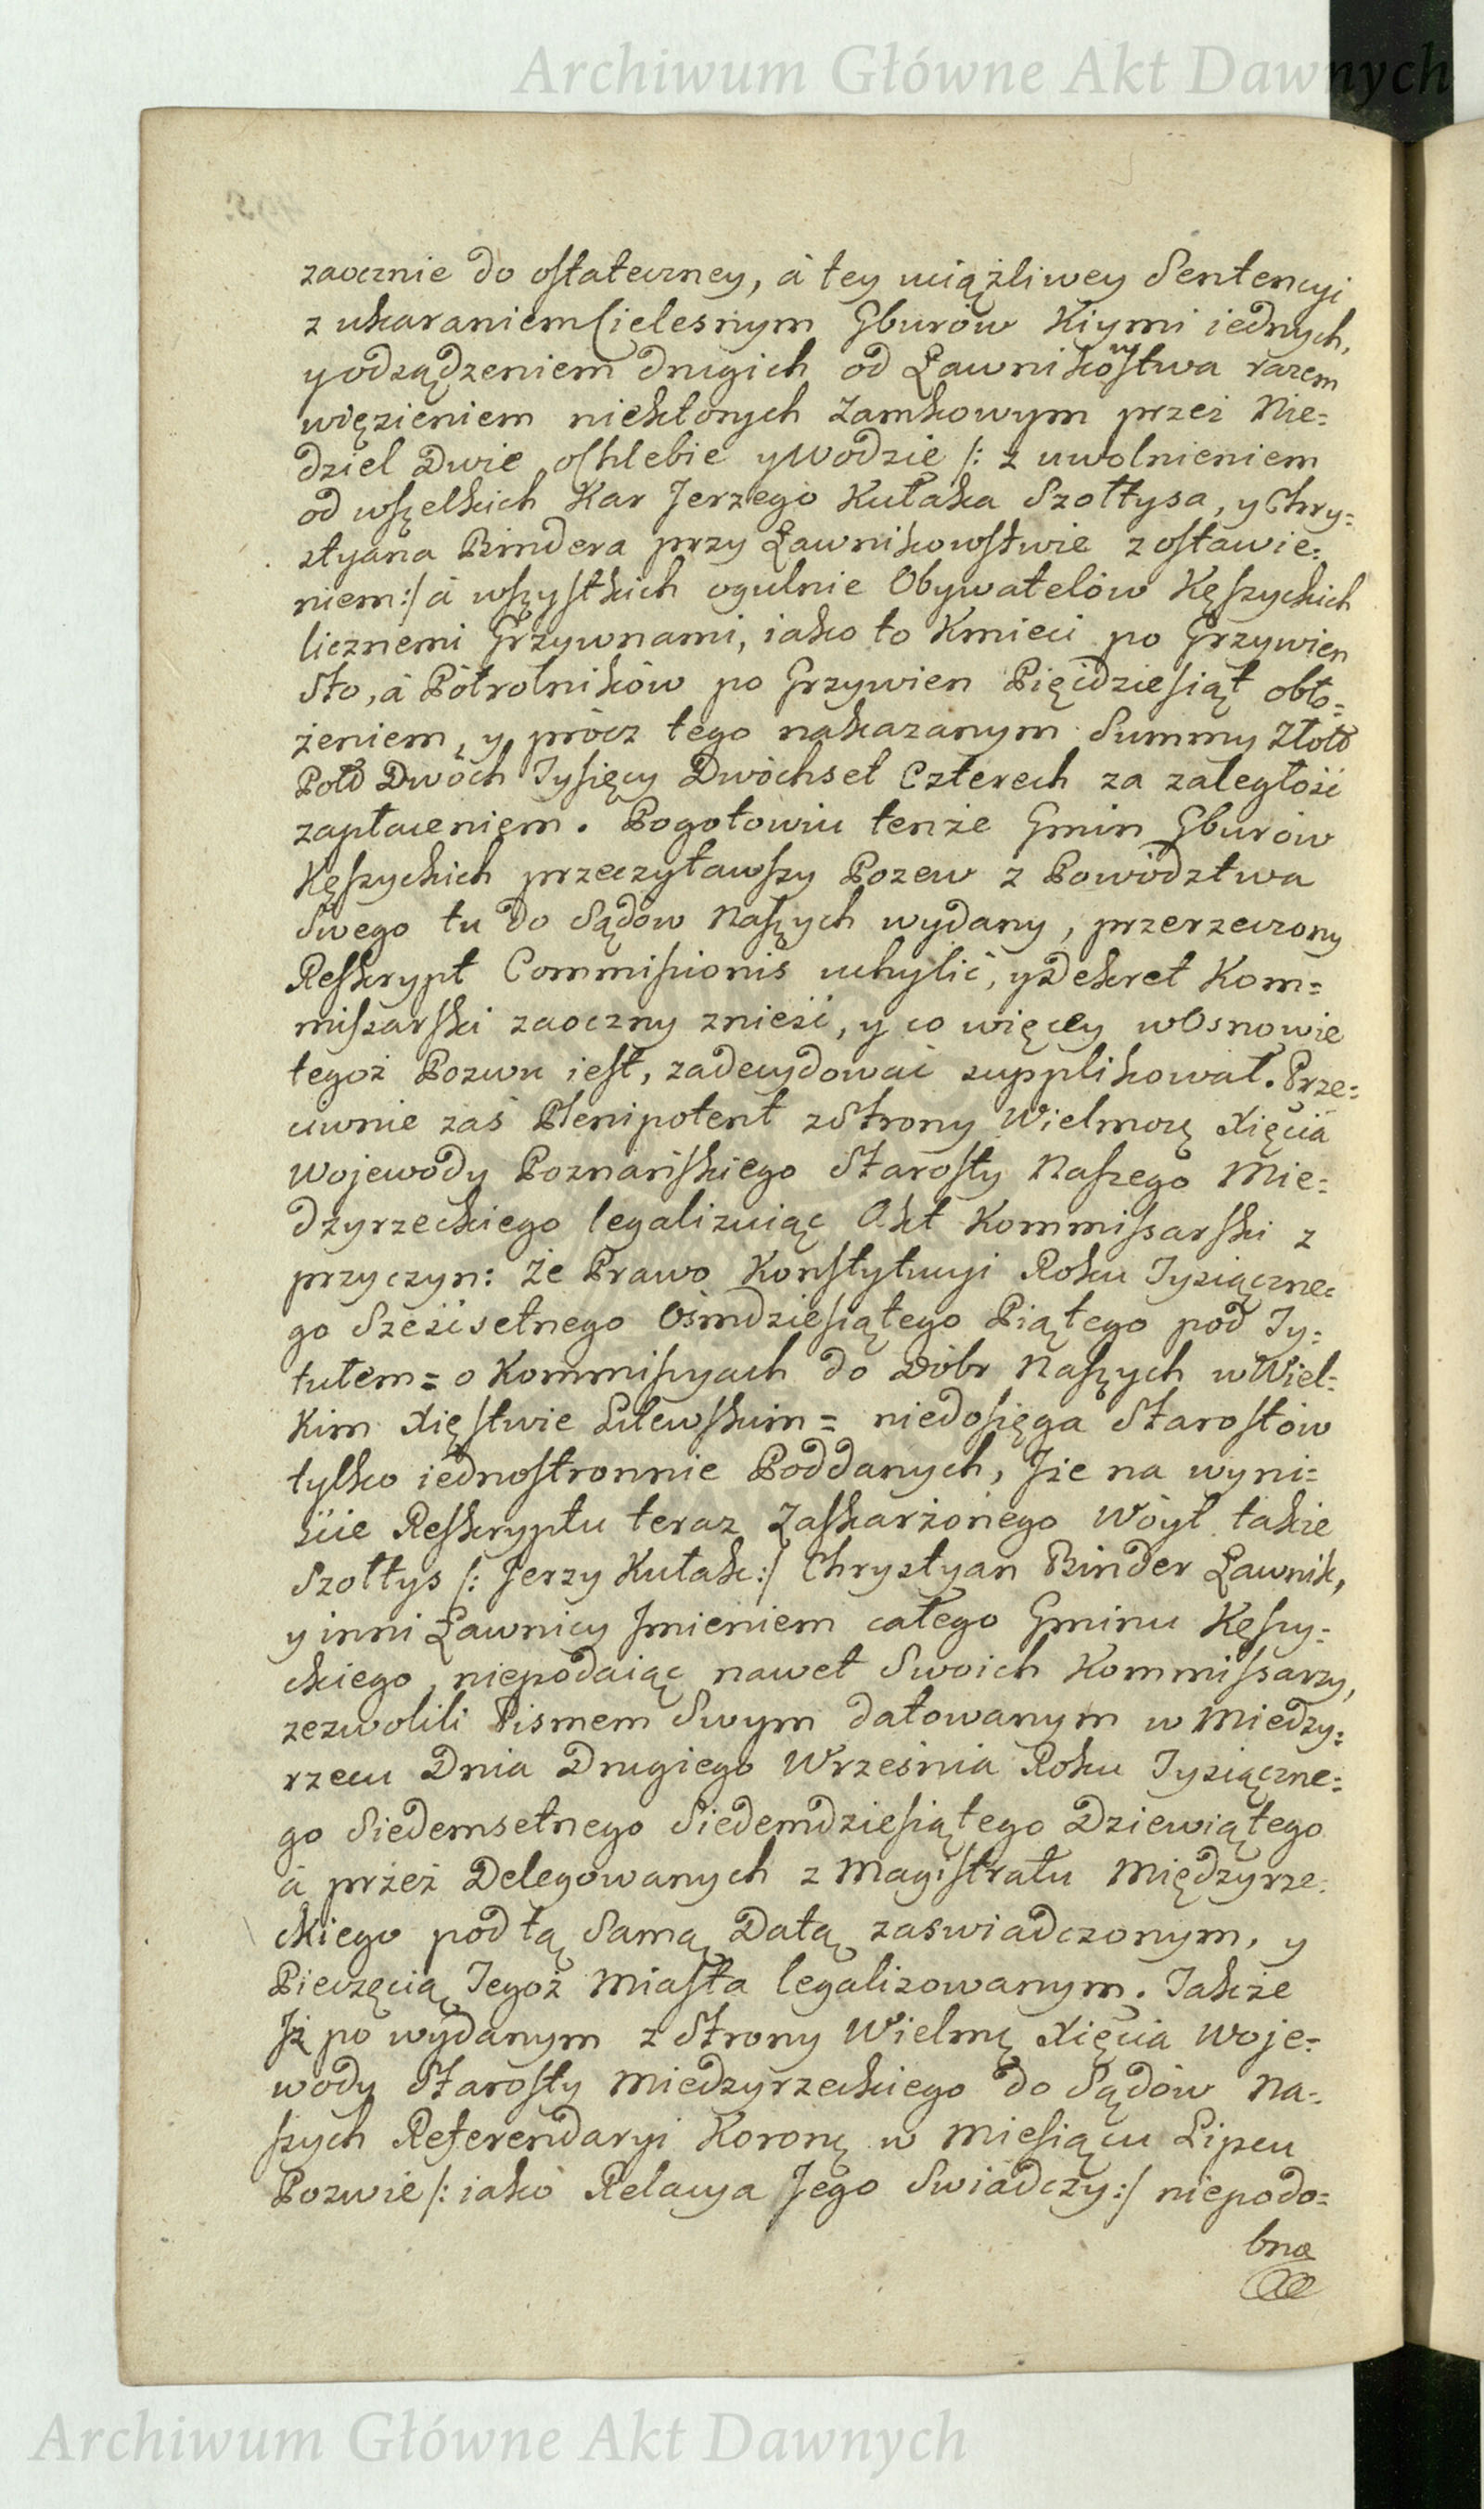 Archiwum Główne Akt Dawnych
zaocznie do ostateczney, á tey uciążliwey Sentencyi
z ukaraniem Cielesnym Gburów Kiymi iednych,
y odsądzeniem drugich od Ławnikowstwa razem
więzieniem niektorych Zamkowym przez Nie=
dziel Dwie o Chlebie y Wodzie /: z uwolnieniem
od wszelkich Kar Jerzego Kułaka Szołtysa, y Chry=
styana Bindera przy Ławnikowstwie zostawie=
niem :/ á wszystkich ogulnie Obywatelów Kęszyckich
licznemi Grzywnami, iako to Kmieci po Grzywien
Sto, á Półrolników po Grzywien Pięćdziesiąt obło=
żeniem, y prócz tego nakazanym Summy Złotᵈ
Polᵈ Dwóch Tysięcy Dwóchset Czterech za zaległość
zapłaceniem. Pogotowiu tenże Gmin Gburów
Kęszyckich przeczytawszy Pozew z Powództwa
Swego tu do Sądów Naszych wydany, przerzeczony
Reskrypt Commissionis uchylić, y Dekret Kom=
missarski zaoczny znieść, y co więcey w Osnowie
tegoż Pozwu iest, zadecydować supplikował. Prze=
ciwnie zaś Plenipotent z Strony Wielmoż Xięcia
Wojewody Poznańskiego Starosty Naszego Mie=
dzyrzeckiego legalizuiąc Akt Kommissarski z
przyczyn: Że Prawo Konstytucyi Roku Tysiączne=
go Sześćsetnego Ośmdziesiątego Piątego pod Ty=
tułem = o Kommissyach do Dóbr Naszych w Wiel=
kim Xięstwie Litewskim = niedosięga Starostów
tylko iednostronnie Poddanych, Iże na wyni=
ście Reskryptu teraz Zaskarżonego Wóyt także
Szołtys /: Jerzy Kułak :/ Chrystyan Binder Ławnik,
y inni Ławnicy Imieniem całego Gminu Kęszy=
ckiego, niepodaiąc nawet Swoich Kommissarzy,
zezwolili Pismem Swym datowanym w Miedzy=
rzecu Dnia Drugiego Września Roku Tysiączne=
go Siedemsetnego Siedemdziesiątego Dziewiątego
á przez Delegowanych z Magistratu Międzyrze=
ckiego pod tą Samą Datą zaswiadczonym, y
Pieczęcią Tegoż Miasta legalizowanym. Także
Iż po wydanym z Strony Wielmż Xięcia Woje=
wody Starosty Miedzyrzeckiego do Sądów Na=
szych Referendaryi Koronę w Miesiącu Lipcu
Pozwie /: iako Relacya Jego Swiadczy :/ niepodo=
bna
Archiwum Główne Akt Dawnych